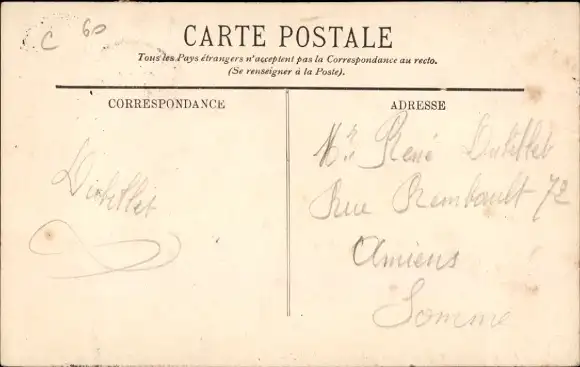 C 60
CARTE POSTALE
Tous les Pays étrangers n'acceptent pas la Correspondance au recto.
(Se renseigner à la Poste).
CORRESPONDANCE
Dubillet
ADRESSE
Mr. René Dubillet
Rue Rembault 72
Amiens
Somme